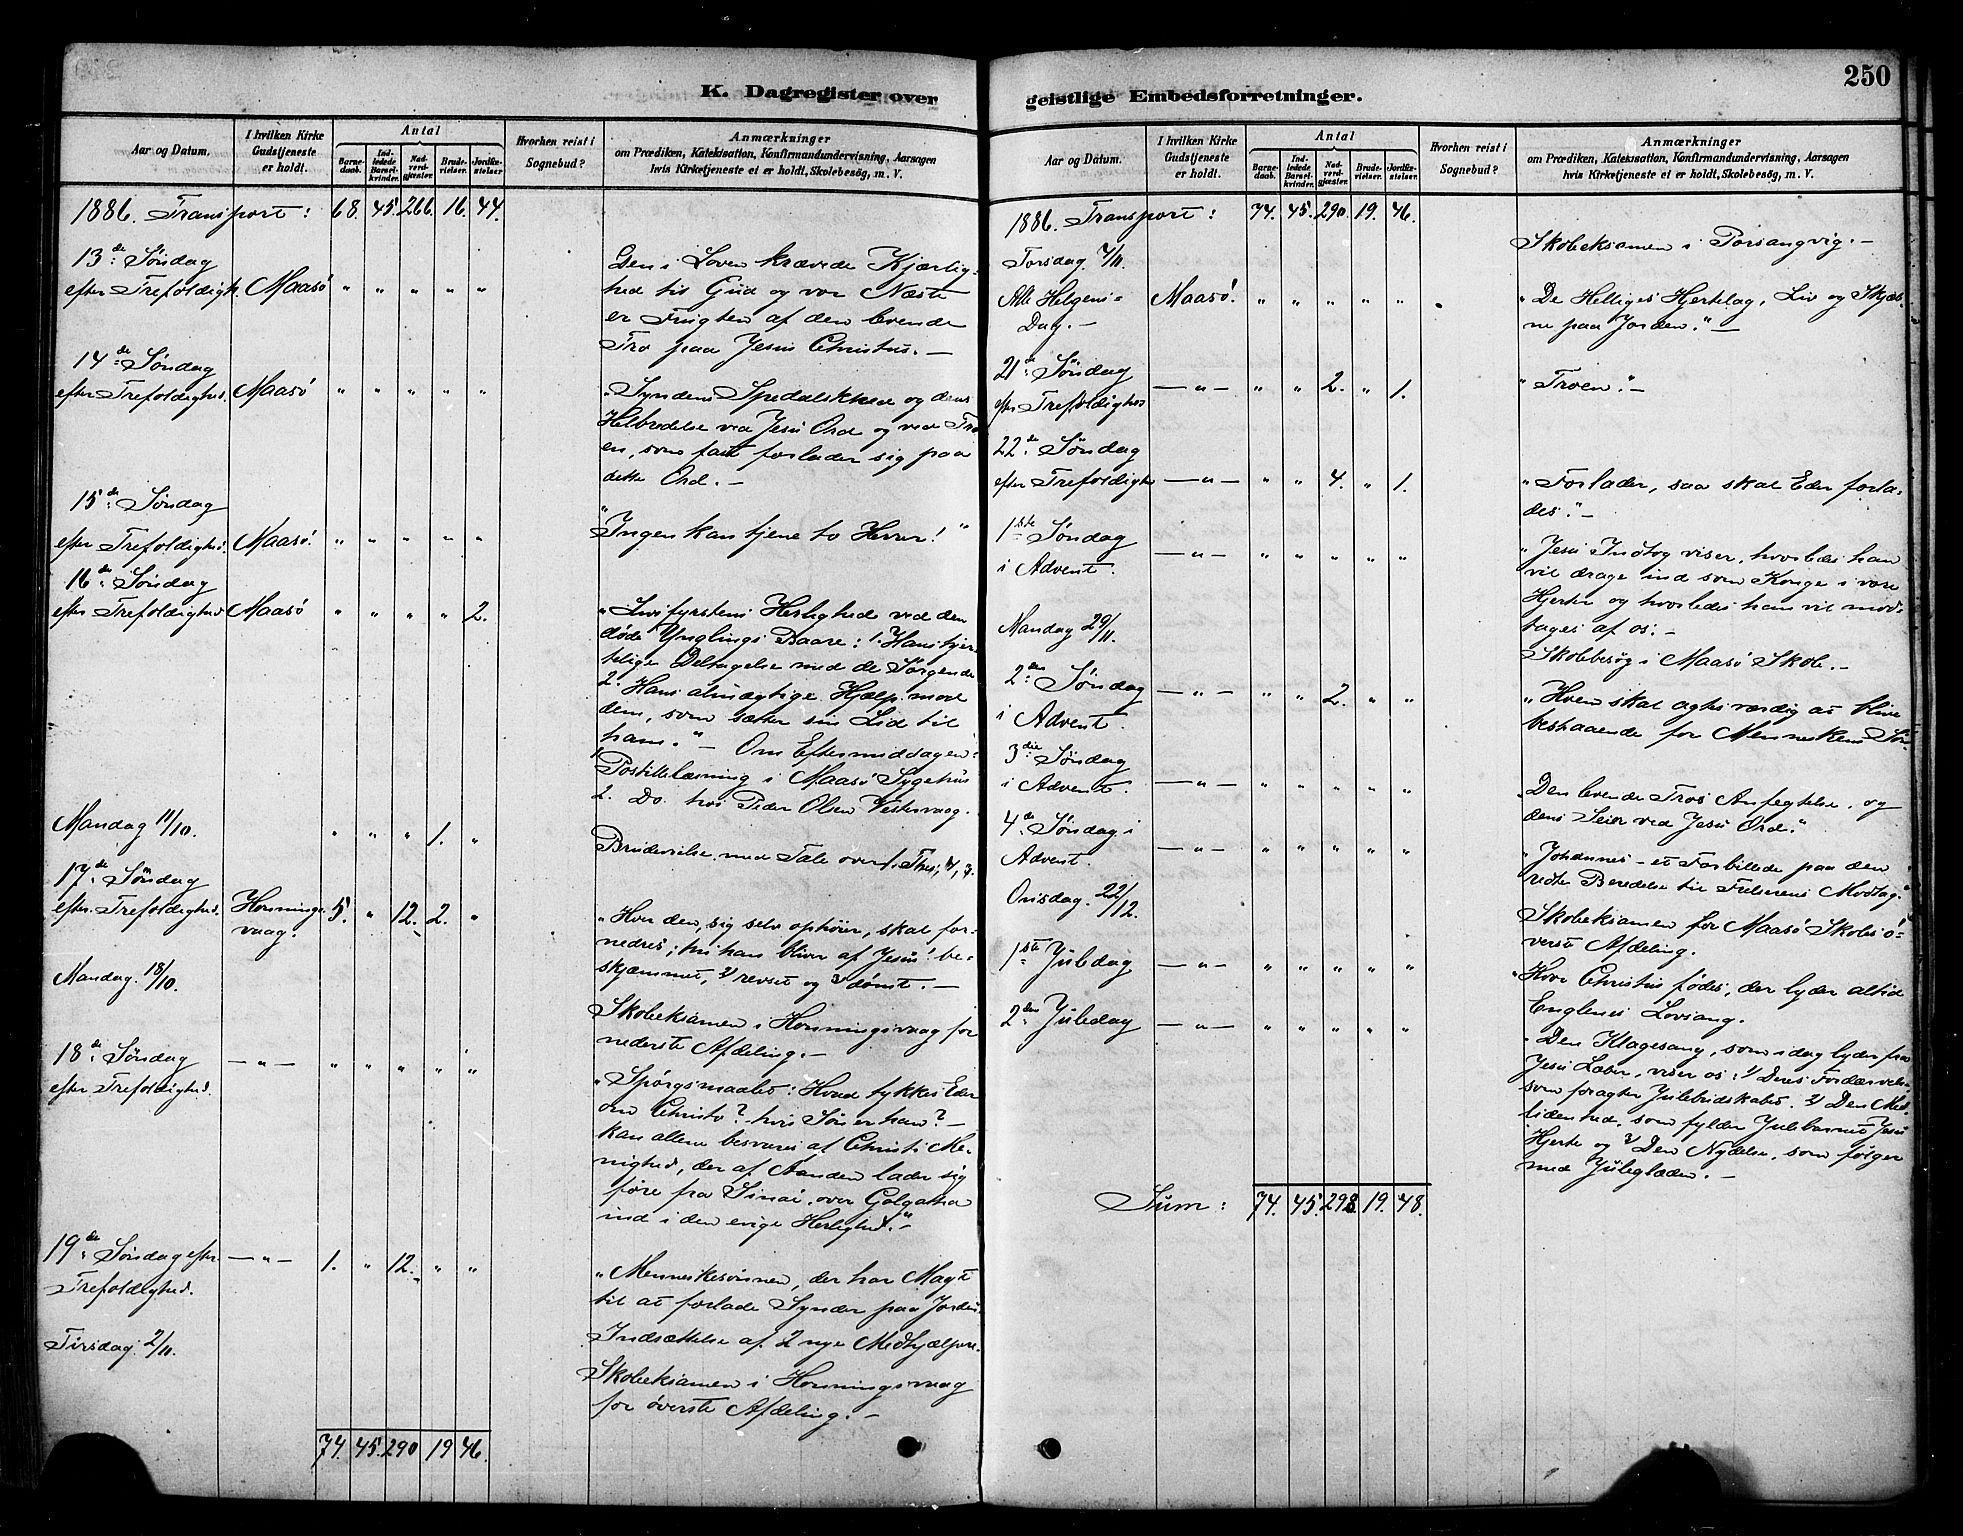 K. Dagregister over
Aar og Datum.
I hvilken Kirke Gudstjeneste er holdt.
Antal
Barnedaab.
Indledede Barselkvinder.
Nadverdgjæster.
Brudevielser.
Jordfæstelser.
Hvorhen reist i Sognebud?
Anmærkninger
om Prædiken, Katekisation, Konfirmandundervisning, Aarsagen
hvis Kirketjeneste ei er holdt, Skolebesög, m. V.
1886. Transport: 68. 45. 266. 16. 44.
13de Søndag
efter Trefoldigh. Maasö " " " " "
Den i Loven krævede Kjærlig-
hed til Gud og vor Næste
er Frugten af den levende
Tro paa Jesus Christus. —
14de Søndag
efter Trefoldighed. Maasö " " " " "
"Syndens Spedalskhed og dens
Helbredelse ved Jesu Ord og ved Tro
en, som fast forlader sig paa
dette Ord. —
15de Søndag
efter Trefoldighed. Maasö. " " " " "
"Ingen kan tjene to Herrer!"
16de Søndag
efter Trefoldighed Maasö " " " " 2.
"Livsfyrstens Herlighed ved den
døde Ynglings Baare: 1. Hans hjer-
telige Deltagelse med de Sørgende
2. Hans almægtige Hjælp mod
dem, som sætter sin Lid til
ham." — Om Eftermiddagen:
1. Postillelæsning i Maasö Sygehus
2. Do. hos Peder Olsen Vestervaag.
Mandag 11/10. " " " 1. "
Brudevielse med Tale over 1. Thes. 4, 9.
17de Søndag
efter Trefoldighed. Honnings-
vaag. 5. " 12. 2. "
"Hver den, sig selv ophöier, skal for-
nedres; thi han bliver af Jesus 1/ be-
skjæmmet, 2/ revset og 3/ dömt. —
Mandag. 18/10.
Skoleeksamen i Honningsvaag for
nederste Afdeling. —
18de Søndag — " — " " " " "
efter Trefoldighed.
"Spörgsmaalet: Hvad tykkes Eder
om Christo? hvis Søn er han? —
kan allene besvares af Christi Me-
nighed, der af Aanden lader sig
føre fra Sinai, over Golgatha
ind i den evige Herlighed." —
19de Søndag efter — " — 1. " 12. " "
Trefoldighed.
"Menneskesønnen, der har Magt
til at forlade Synder paa Jorden.
Indsættelse af 2 nye Medhjælpere.
Tirsdag. 2/11.
Skoleeksamen i Honningsvaag
for överste Afdeling. —
74. 45. 290 19 46.
geistlige Embedsforretninger.
250
Aar og Datum.
I hvilken Kirke Gudstjeneste er holdt.
Antal
Barnedaab.
Indledede Barselkvinder.
Nadverdgjæster.
Brudevielser.
Jordfæstelser.
Hvorhen reist i Sognebud?
Anmærkninger
om Prædiken, Katekisation, Konfirmandundervisning, Aarsagen
hvis Kirketjeneste ei er holdt, Skolebesög, m. V.
1886. Transport: 74. 45. 290. 19. 46.
Torsdag. 4/11.
Skoleeksamen i Porsangvig. —
Alle Helgens-
Dag. — Maasö. " " " " "
"De Helliges Hjertelag, Liv og Skjæb-
ne paa Jorden." —
21de Søndag
efter Trefoldighed — " — " " 2. " 1.
"Troen." —
22de Søndag
efter Trefoldighed — " — " " 4. " 1.
"Forlader, saa skal Eder forla-
des." —
1ste Søndag
i Advent. — " — " " " " "
"Jesu Indtog viser, hvorledes han
vil drage ind som Konge i vore
Hjerter og hvorledes han vil mod-
tages af os. —
Mandag 29/11.
Skolebesøg i Maasö Skole. —
2den Søndag
i Advent. — " — " " 2. " "
"Hvem skal agtes værdig at blive
bestaaende for Menneskens Søn
3die Søndag
i Advent. — " — " " " " "
"Den levende Tros Anfegtelse, og
dens Seier ved Jesu Ord."
4de Søndag i
Advent. — " — " " " " "
"Johannes — et Forbillede paa den
rette Beredelse til Frelserens Modtag."
Onsdag. 22/12.
Skoleeksamen for Maasö Skoles ö-
verste Afdeling.
1ste Juledag — " — " " " " "
"Hvor Christus fødes, der lyder altid
Englenes Lovsang.
2den Juledag — " — " " " " "
"Den Klagesang, som idag lyder fra
Jesu Læber, viser os: 1/ Deres Fordærvelse
som foragter Julebudskabet. 2/ Den Med-
lidenhed, som fylder Julebarnet Jesu
Hjerte og 3/ Den Nydelse, som følger
med Juleglæden. —
Sum: 74. 45. 298. 19. 48.